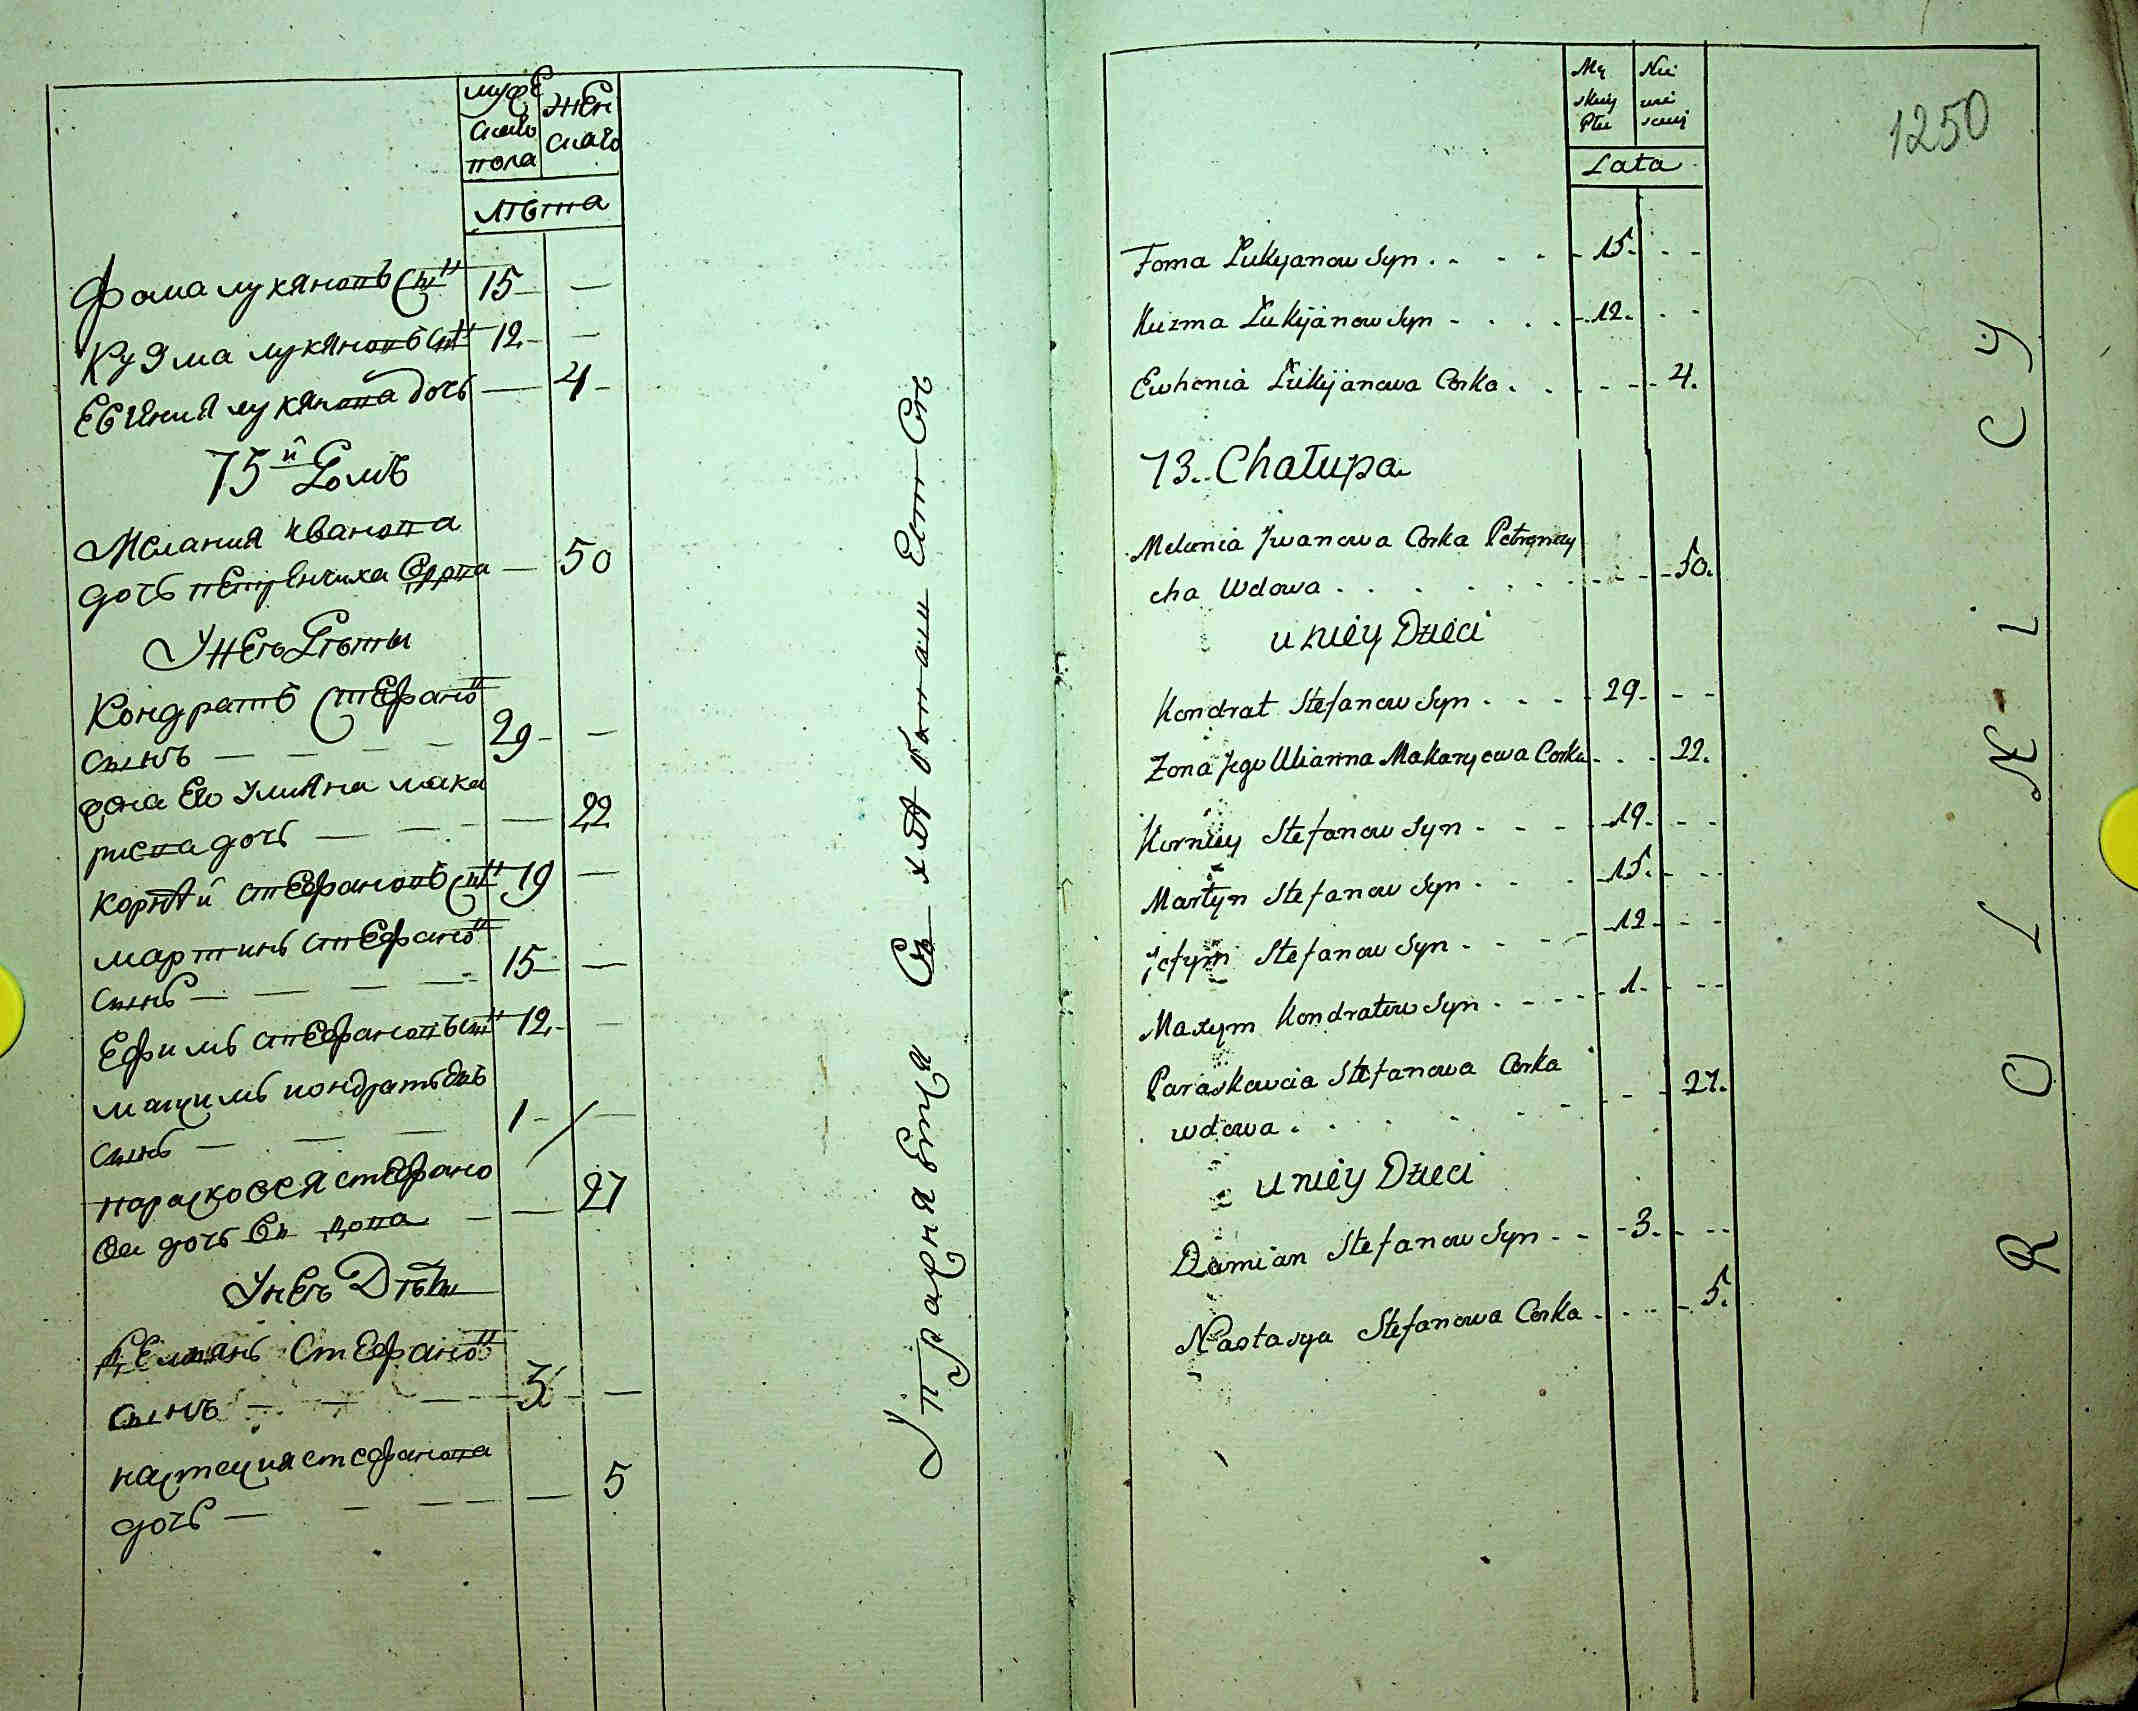 мужеска​го пола
женскаго
лѣта
Фома лукяновъ сы͞нъ 15 —
Кузма лукяновъ сы͞нъ 12 —
Евгения лукянова дочь — 4
75й Домъ
Мелания иванова
дочь петренчиха вдова — 50
У неѣ Дѣты
Кондратъ стефано͞въ
сынъ — — — — 29 —
жена Его улияна мака
риева дочь — — — 22
корнѣй стефановъ сы͞нъ 19 —
мартинъ стефано͞въ
сынъ — — — — 15 —
Ефимъ стефановъ сы͞нъ 12 —
кондратьевъ
сынъ — — — 1 —
парасковея стефано
ва дочь вдова — — 27
У неѣ Дѣты
Демиянъ Стефано͞въ
сынъ — — — 3 —
настасия стефанова
дочь — — — — 5
1250
Lata
Foma Łukyanow Syn . . 15. - -
Kuzma Łukijanow Syn - . . 12. . -
Ewhenia Łukijanowa Corka . . . 4.
73. Chałupa
Melania Jwanowa Corka Petrynczy
cha Wdowa . . . . . 50.
u niey Dzieci
Kondrat Stefanow Syn . . . 29 - -
Zona Jego Ulianna Makaryewa Corka . . . 22.
Korniey Stefanow Syn - - - 19. - -
Martyn Stefanow Syn . . . 15. - -
Stefanow Syn . - - 12 - -
Maxym Kondratiew Syn . - - - 1. - -
Paraskowia Stefanowa Corka
wdowa . . . . . - - 27.
u niey Dzieci
Damian Stefanow Syn - - 3. - -
Nastasya Stefanowa Corka . . . 5.
R O L N I C Y